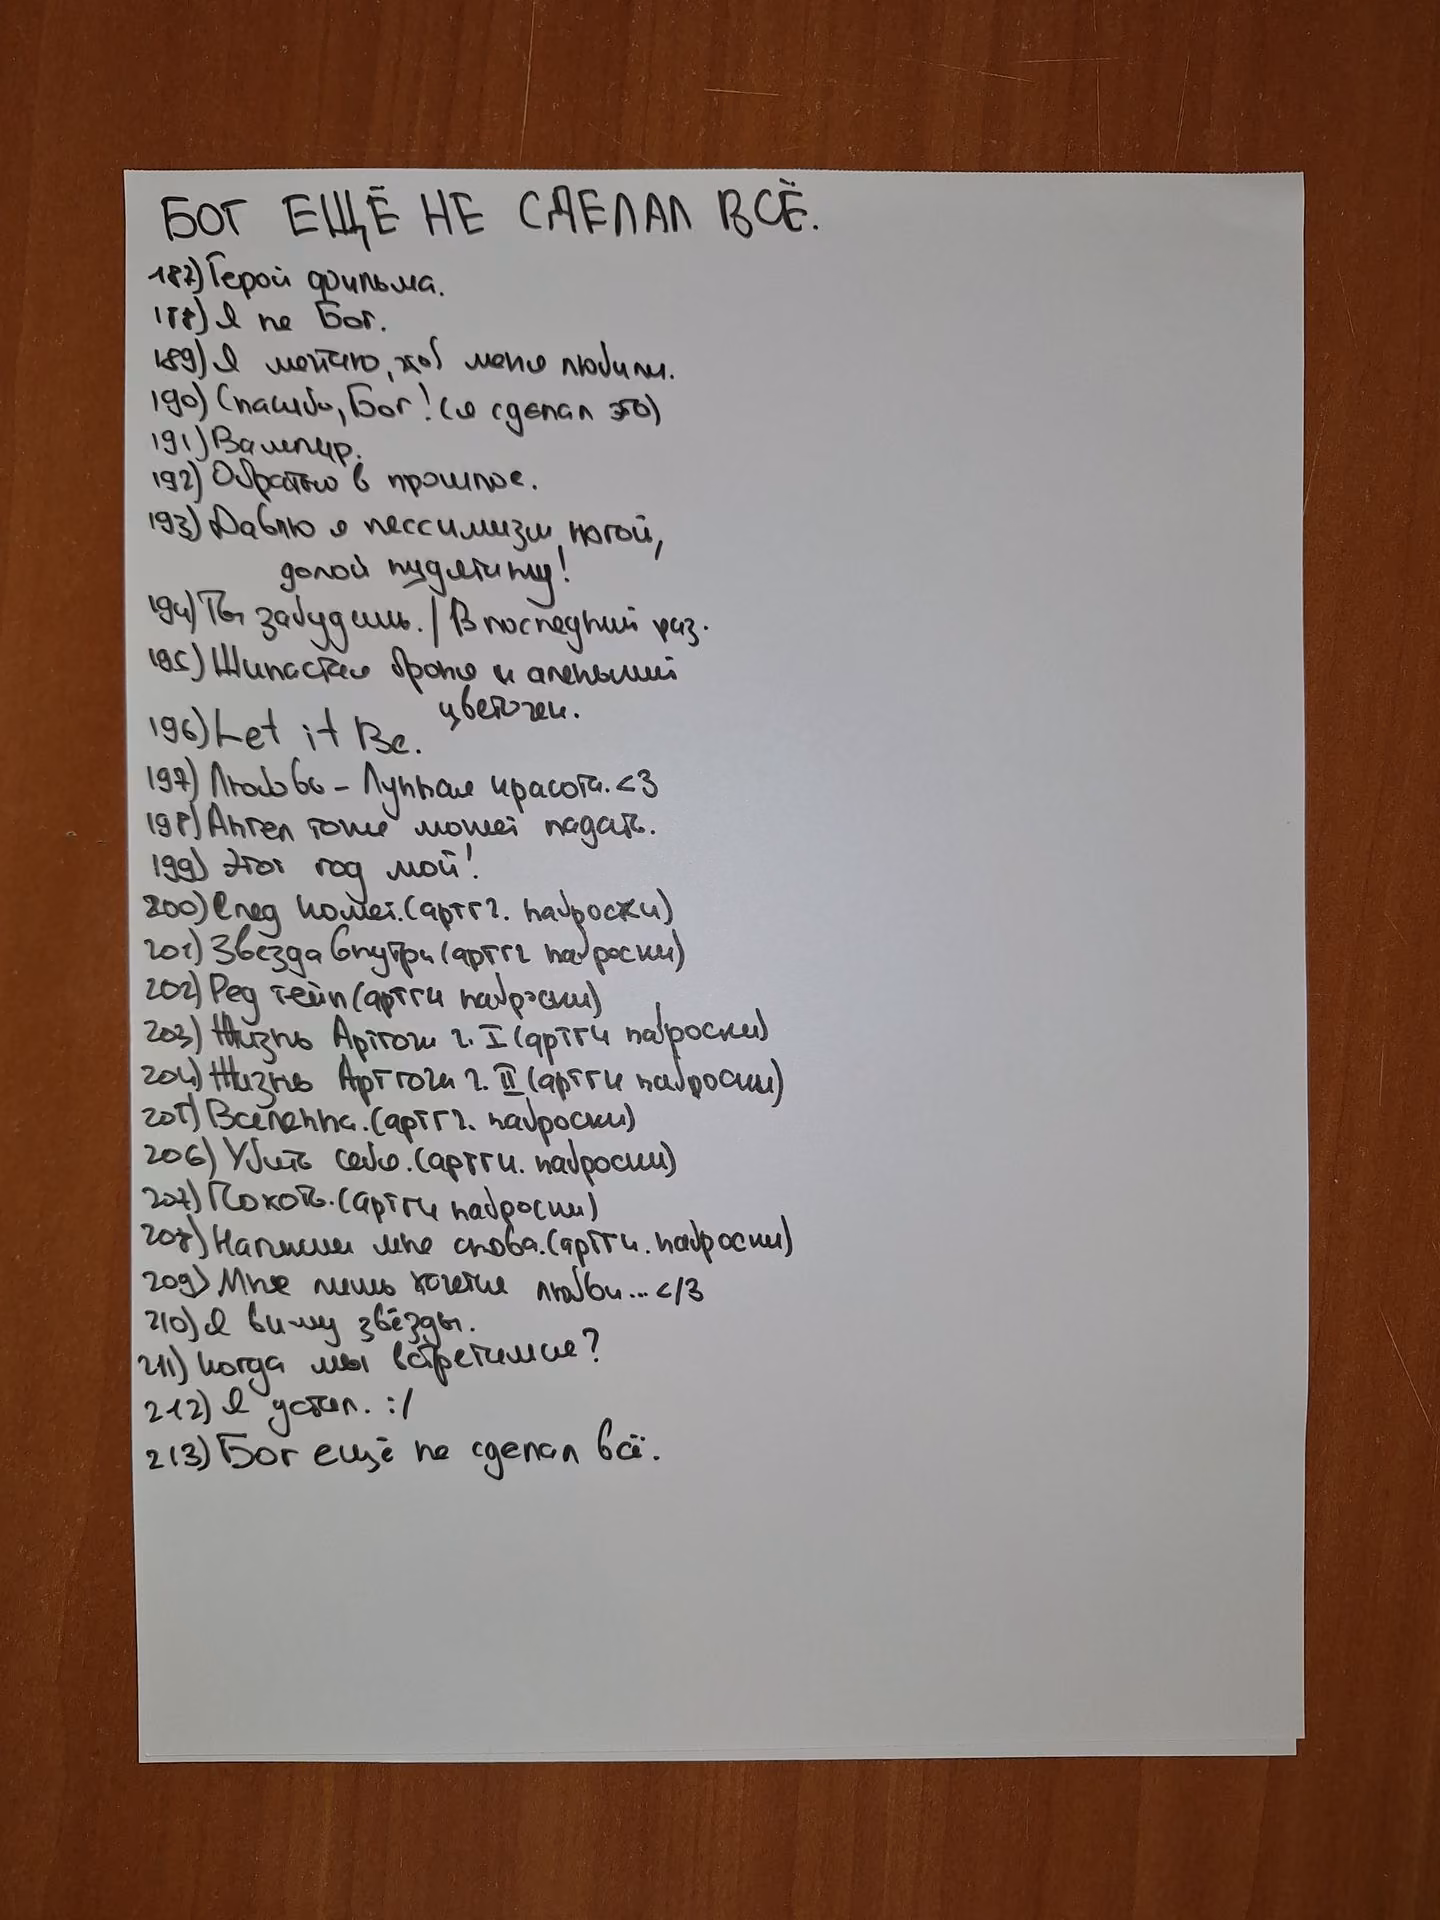 БОГ ЕЩЁ НЕ СДЕЛАЛ ВСЁ.
187) Герой фильма.
188) Я не Бог.
189) Я мечтаю, чтоб меня любили.
190) Спасибо, Бог! (я сделал это)
191) Вампир.
192) Обратно в прошлое.
193) Давлю я пессимизм ногой,
долой
194) Ты забудешь. / В последний раз.
195) Шипастая броня и аленький
цветочек.
196) Let it Be.
197) Любовь - Лунная красота. <3
198) Ангел тоже может падать.
199) Этот год мой!
200) След комет. (артгч. наброски)
201) Звезда внутри (артгч наброски)
202) Ред тейп (артгч наброски)
203) Жизнь ч. I (артгч наброски)
204) Жизнь ч. II (артгч наброски)
205) (артгч. наброски)
206) Убить себя. (артгч. наброски)
207) Похоть. (артгч наброски)
208) Напиши мне снова. (артгч. наброски)
209) Мне лишь хочется любви... </3
210) Я вижу звёзды.
211) Когда мы встретимся?
212) Я устал. :/
213) Бог ещё не сделал всё.